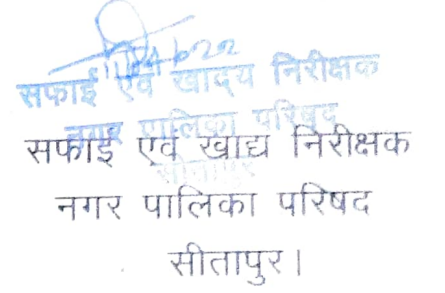 सफाई एवं खाद्य निरीक्षक
नगर पालिका परिषद
सीतापुर
सफाई एवं खाद्य निरीक्षक
नगर पालिका परिषद
सीतापुर।